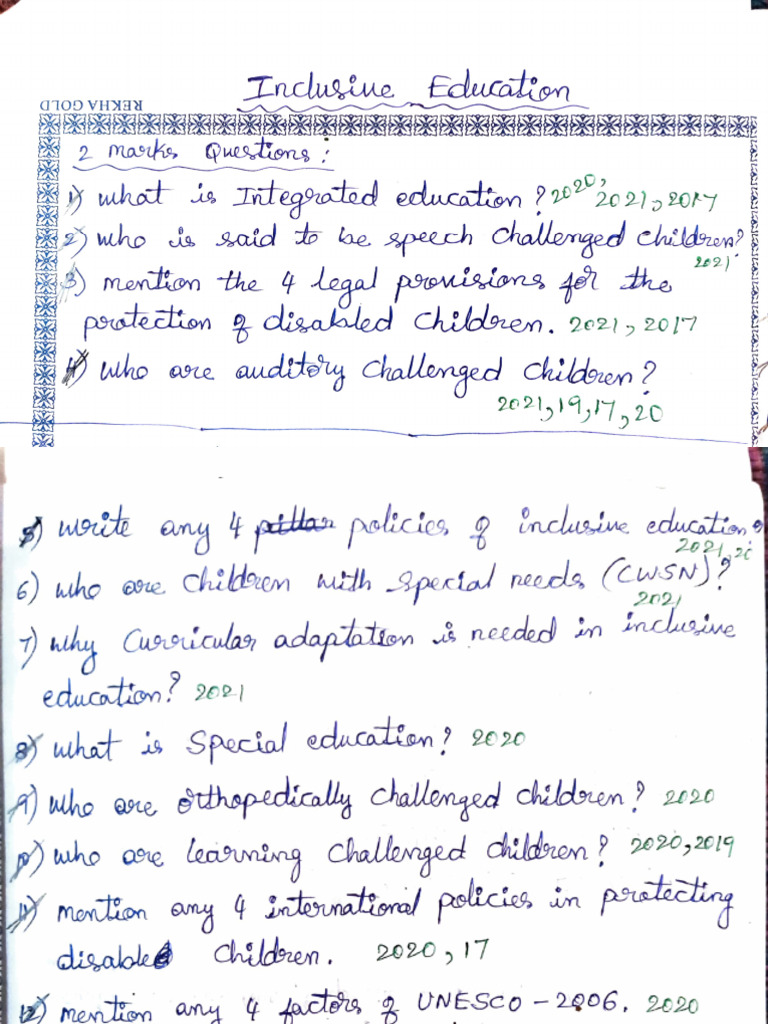 Inclusive Education
REKHA GOLD
2 Marks Questions :
1) what is Integrated education ? 2020, 2021, 2017
2) who is said to be speech challenged children?
2021
3) mention the 4 legal provisions for the
protection of disabled children. 2021, 2017
4) who are auditory challenged children?
2021, 19, 17, 20
5) write any 4 pillar policies of inclusive education.
2021, 20
6) who are children with special needs (CWSN)?
2021
7) why Curricular adaptation is needed in inclusive
education? 2021
8) what is Special education? 2020
9) who are orthopedically challenged children? 2020
10) who are learning challenged children? 2020, 2019
11) mention any 4 international policies in protecting
disabled children. 2020, 17
12) mention any 4 factors of UNESCO - 2006. 2020